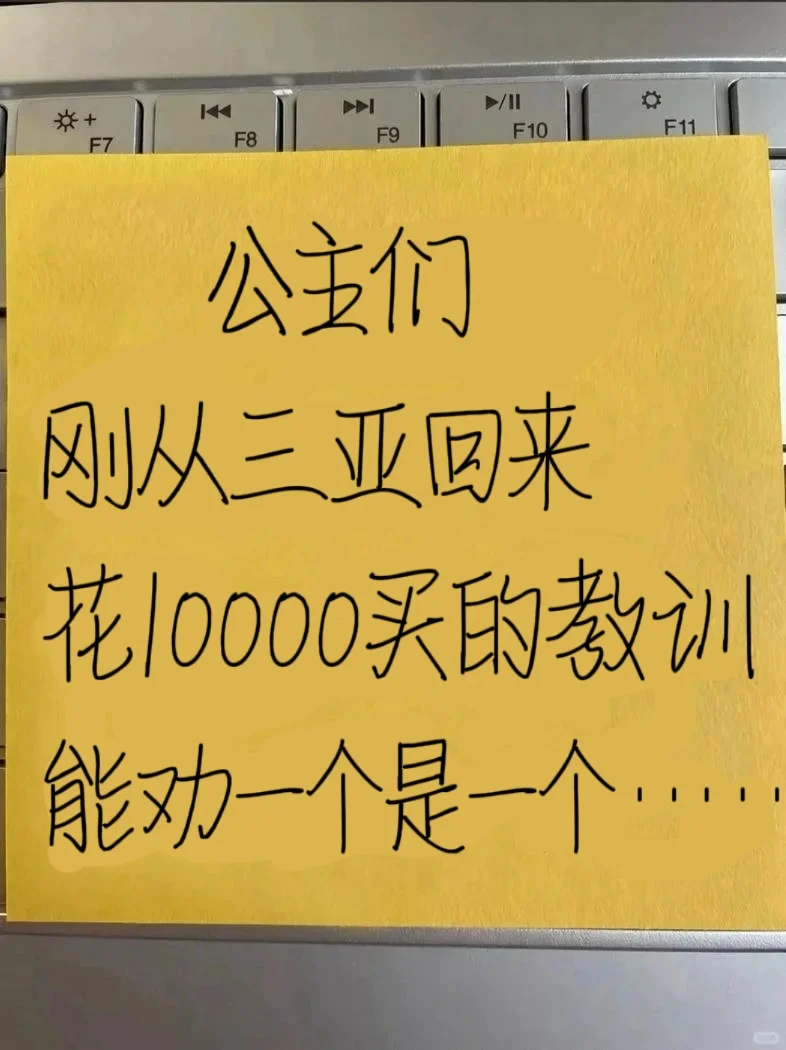 F7
F8
F9
F10
F11
公主们
刚从三亚回来
花10000买的教训
能劝一个是一个······